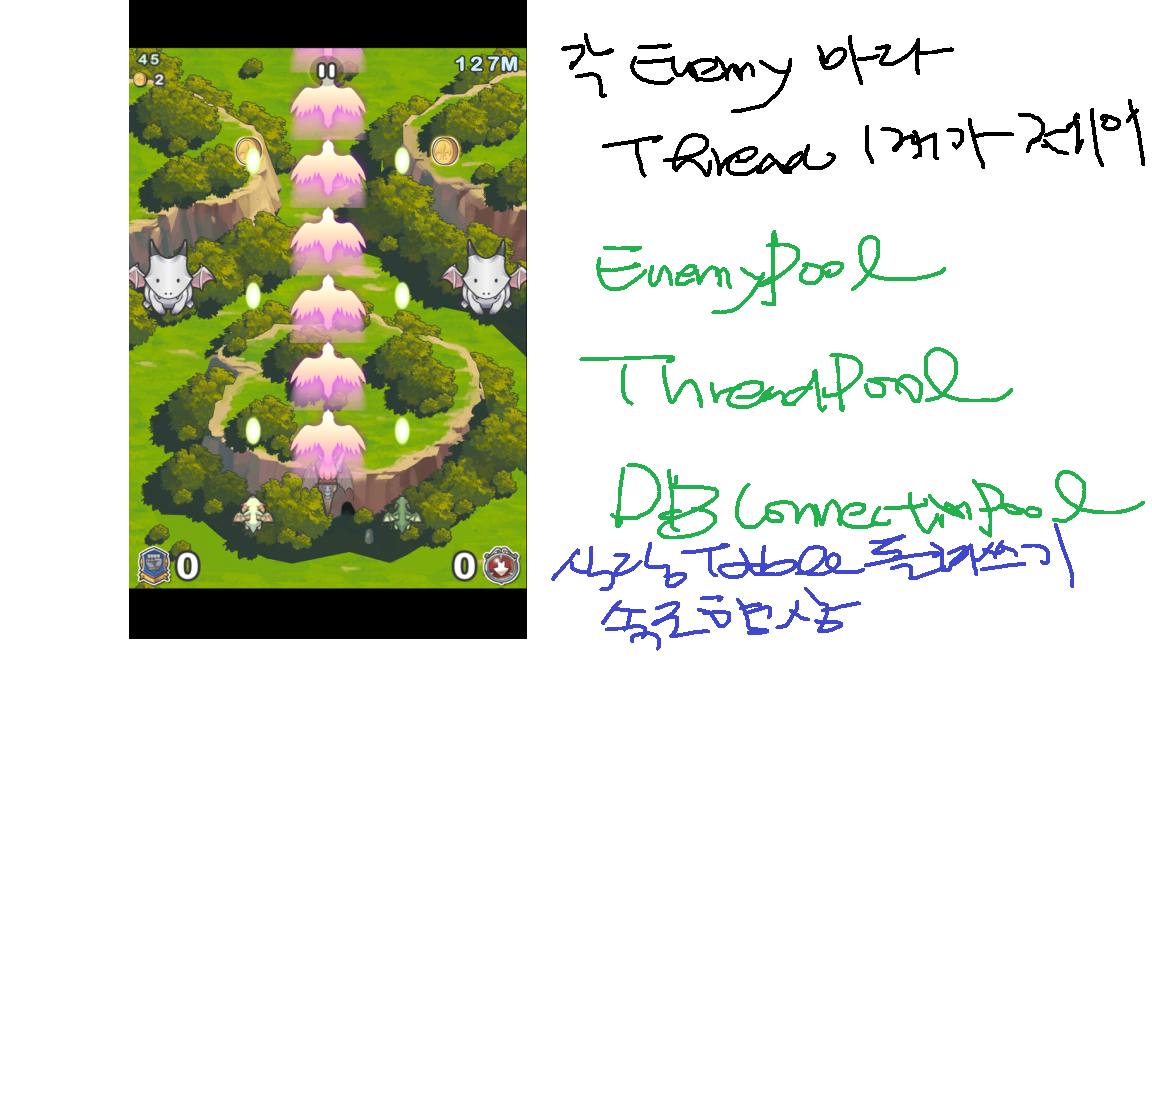 45
2
127M
0
0
각 Enemy 마다
Thread 1개가 제어
EnemyPool
ThreadPool
DB ConnectionPool
식당 Table
현상